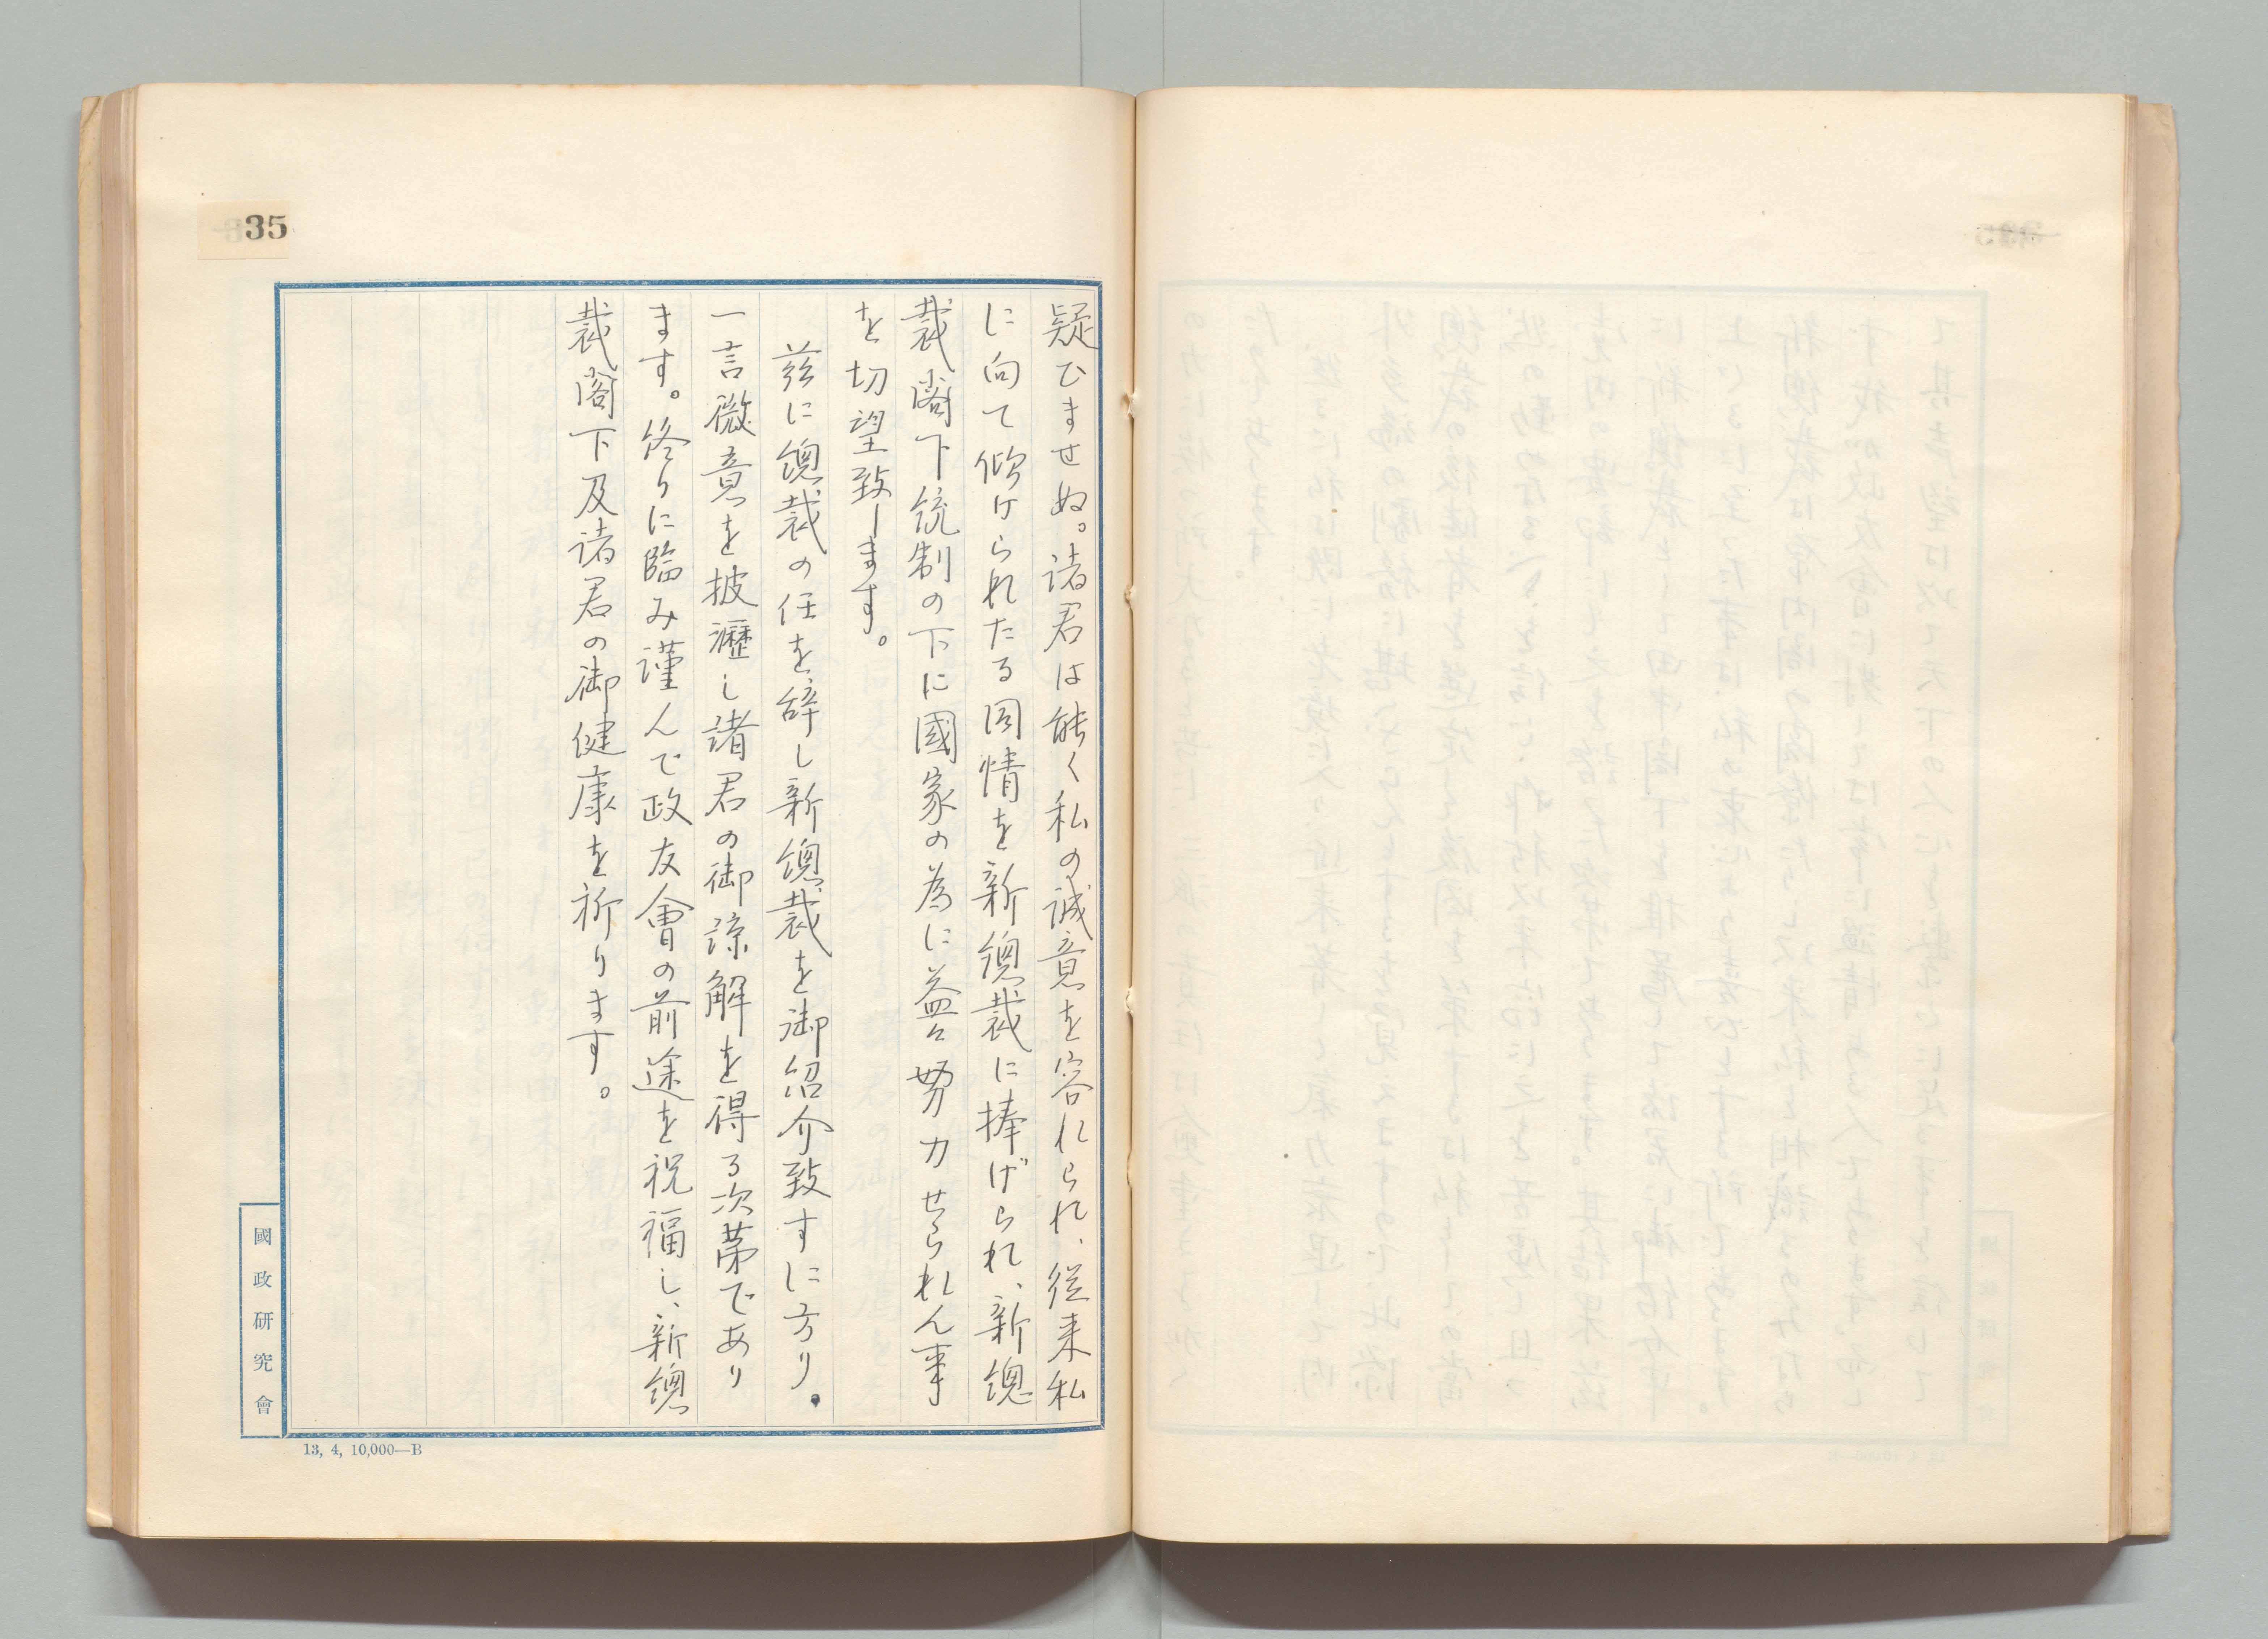 35
疑ひませぬ。諸君は能く私の誠意を容れられ、從来私
に向て傾けられたる同情を新總裁に捧げられ、新總
裁閣下統制の下に國家の為に益〻努力せられん事
を切望致します。
茲に總裁の任を辞し新總裁を御紹介致すに方り。
一言微意を披瀝し諸君の御諒解を得る次第であり
ます。終りに臨み謹んで政友會の前途を祝福し、新總
裁閣下及諸君の御健康を祈ります。
國政研究會
13, 4, 10,000—B